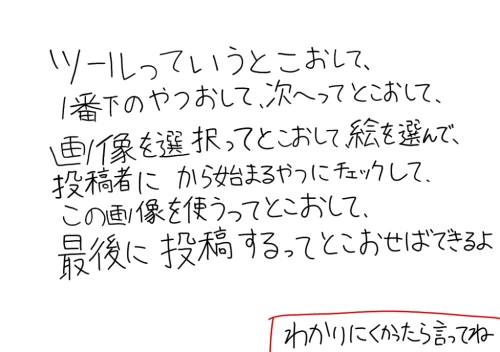 ツールっていうとこおして、
1番下のやつおして、次へってとこおして、
画像を選択ってとこおして、絵を選んで、
投稿者に から始まるやつにチェックして、
この画像を使うってとこおして、
最後に投稿するってとこおせばできるよ
わかりにくかったら言ってね